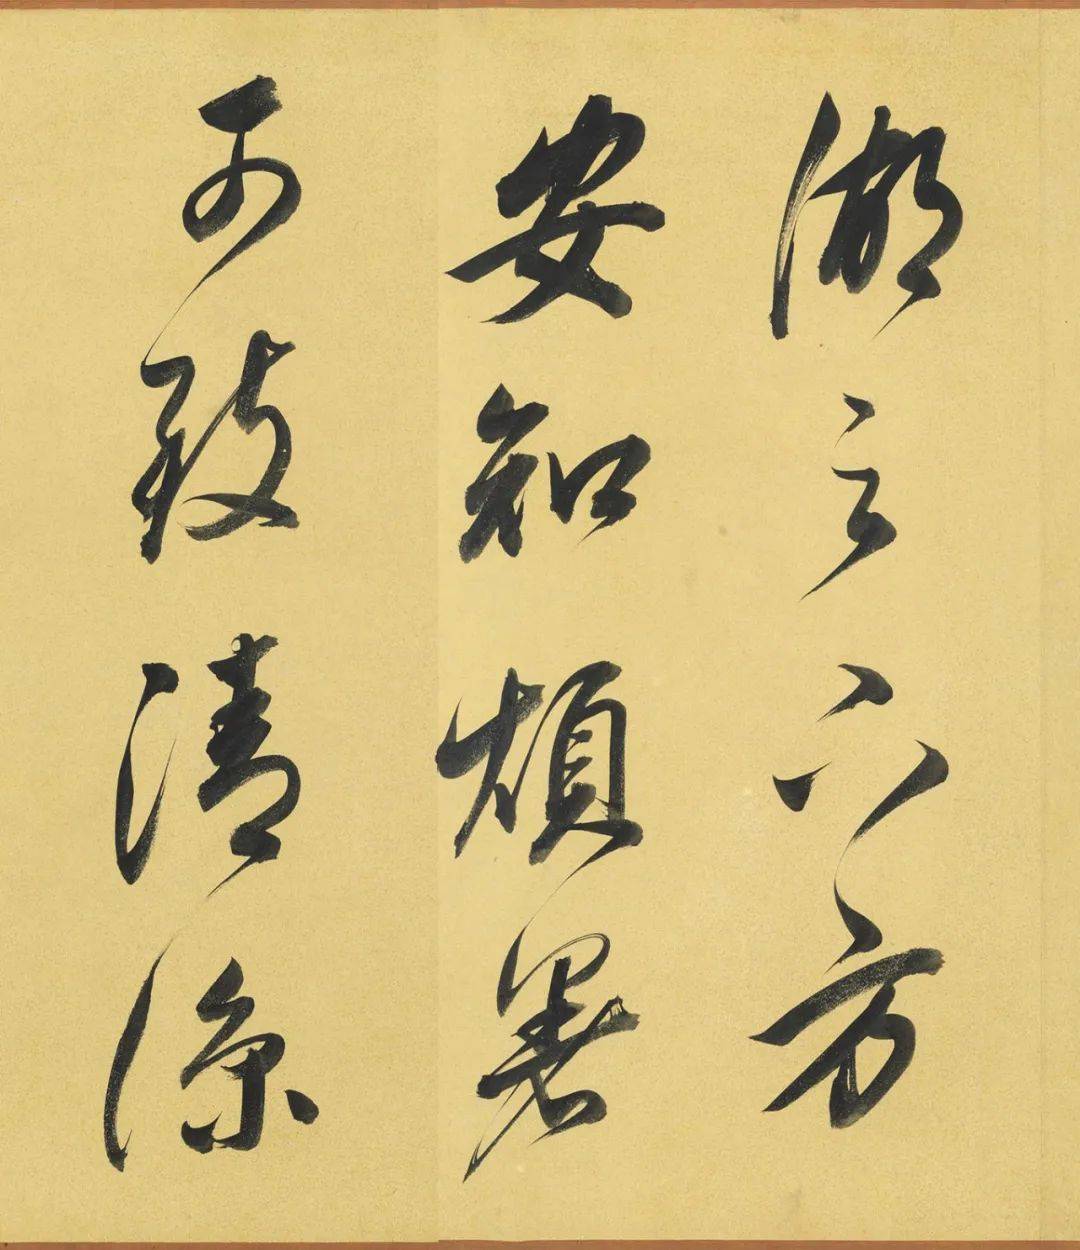 之六方
安知煩暑
可致清涼